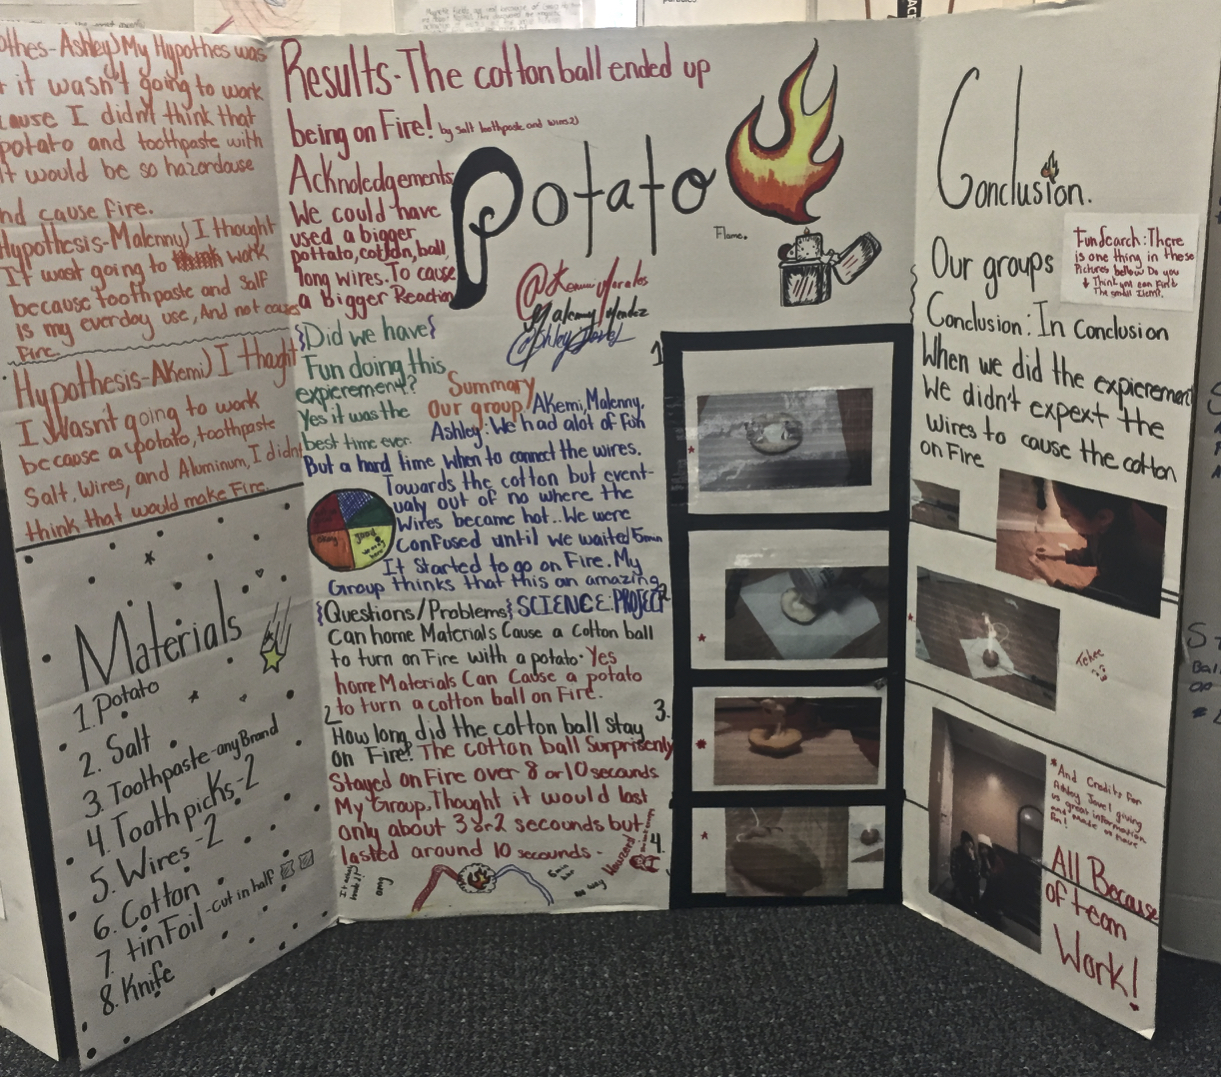 othes-Ashley) My Hypothes was
it wasn't going to work
cause I didn't think that
potato and toothpaste with
it would be so hazordouse
nd cause fire.
Hypothesis-Malenny) I thought
It wasnt going to work
because toothpaste and Salf
is my everday use, And not causes
Fire.
Hypothesis-AKemi) I thaught
I Wasn't going to work
because a potato, toothpaste
Salt, Wires, and Aluminum, I didnt
think that would make Fire.
Materials
1. Potato
2. Salt
3. Toothpaste-any Brand
4. Tooth picks-2
5. Wires-2
6. Cotton
7. tinFoil-cut in half
8. Knife
Results-The cotton ball ended up
being on Fire! by Salt toothpaste and wires 2)
Acknoledgements
We could have
used a bigger
pottato, cotton, ball,
long wires. To cause
a bigger Reaction
Potato
Flame.
@Kemi Morales
Malenny Mendez
@shley Jovel
{Did we have}
Fun doing this
expierement?
Yes it was the
best time ever.
Summary
Our group/Akemi, Malenny,
Ashley: We had alot of Fun
But a hard time when to connect the wires.
Towards the cotton but event-
ualy out of no where the
Wires became hot.. We were
Confused until we waited 15min
It Started to go on Fire. My
Group thinks that this an amazing
SCIENCE:PROJECT
{Questions/Problems}
Can home Materials Cause a Cotton ball
to turn on Fire with a potato. Yes
home Materials Can Cause a potato
to turn a cotton ball on Fire.
2 How long did the cotton ball stay
on Fire? The cotton ball Surprisenly
Stayed on Fire over 8 or 10 secounds
My Group, Thought it would last
only about 3 or 2 secounds but
lasted around 10 secounds.
omg
1
2
3.
4.
Conclusion.
Fun Search: There
is one thing in these
Pictures bellow Do you
Think you can Find
The small Item?
Our groups
Conclusion: In Conclusion
When we did the expierement
We didn't expext the
Wires to cause the cotton
on Fire
Tehee
*And Credits for
Ashley Jovel giving
us great information
and made us have
fun!
All Because
of team
Work!